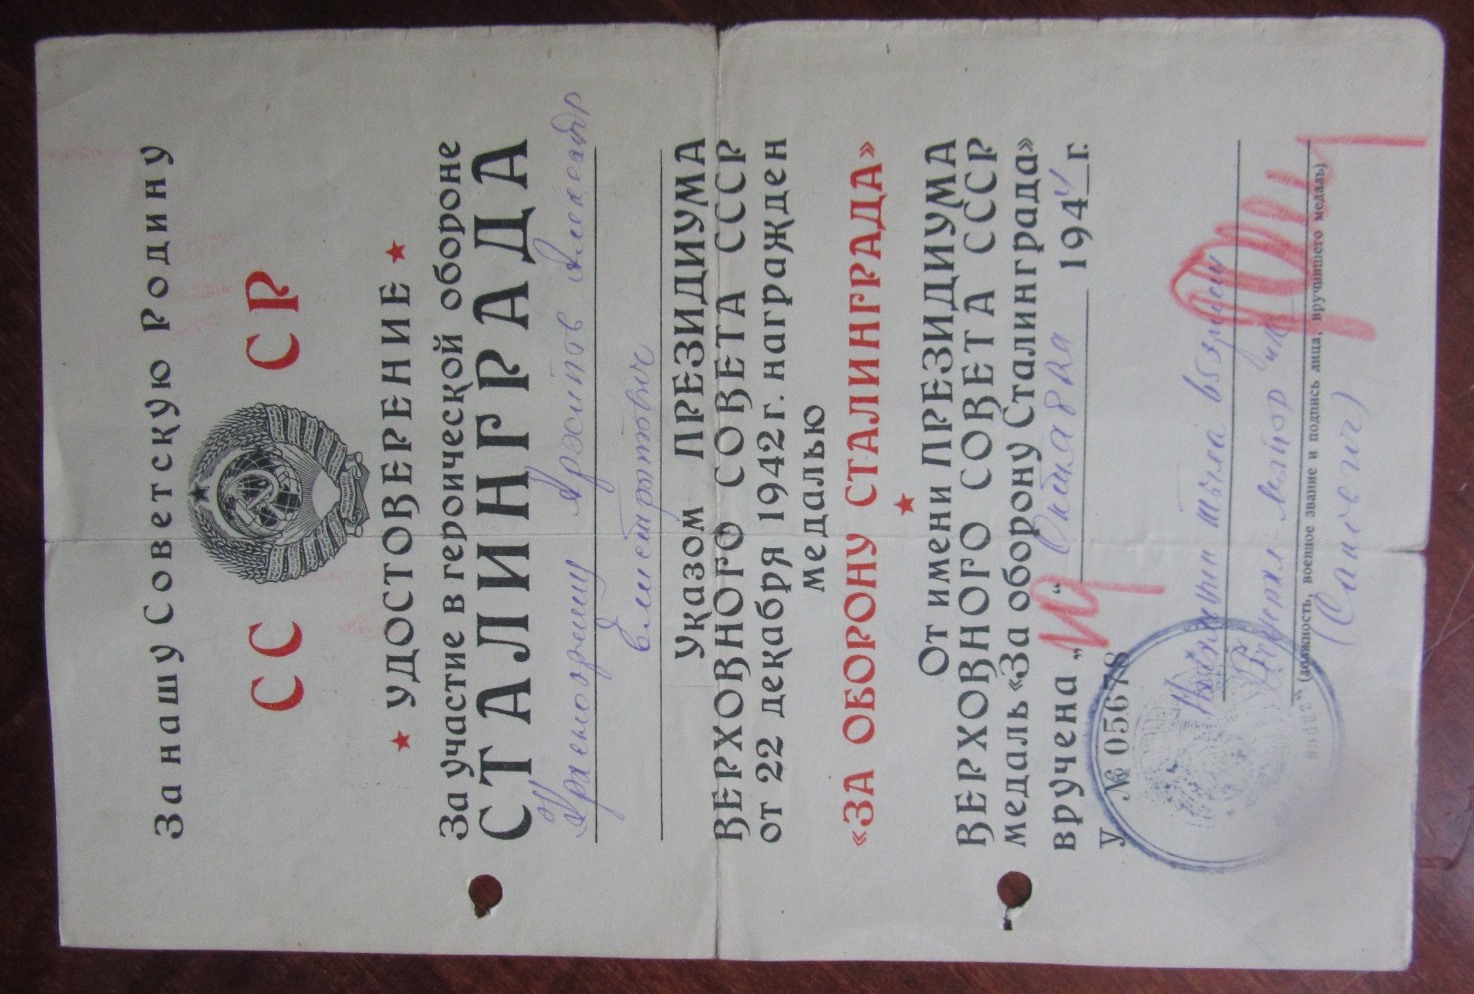 За нашу Советскую Родину
СС СР
УДОСТОВЕРЕНИЕ
За участие в героической обороне
СТАЛИНГРАДА
Указом ПРЕЗИДИУМА
ВЕРХОВНОГО СОВЕТА СССР
от 22 декабря 1942 г. награжден
медалью
«ЗА ОБОРОНУ СТАЛИНГРАДА»
От имени ПРЕЗИДИУМА
ВЕРХОВНОГО СОВЕТА СССР
медаль «За оборону Сталинграда»
вручена „ 10 “ Октября 1944 г.
У № 05678
Генерал-майор
(должность, военное звание и подпись лица, вручившего медаль)